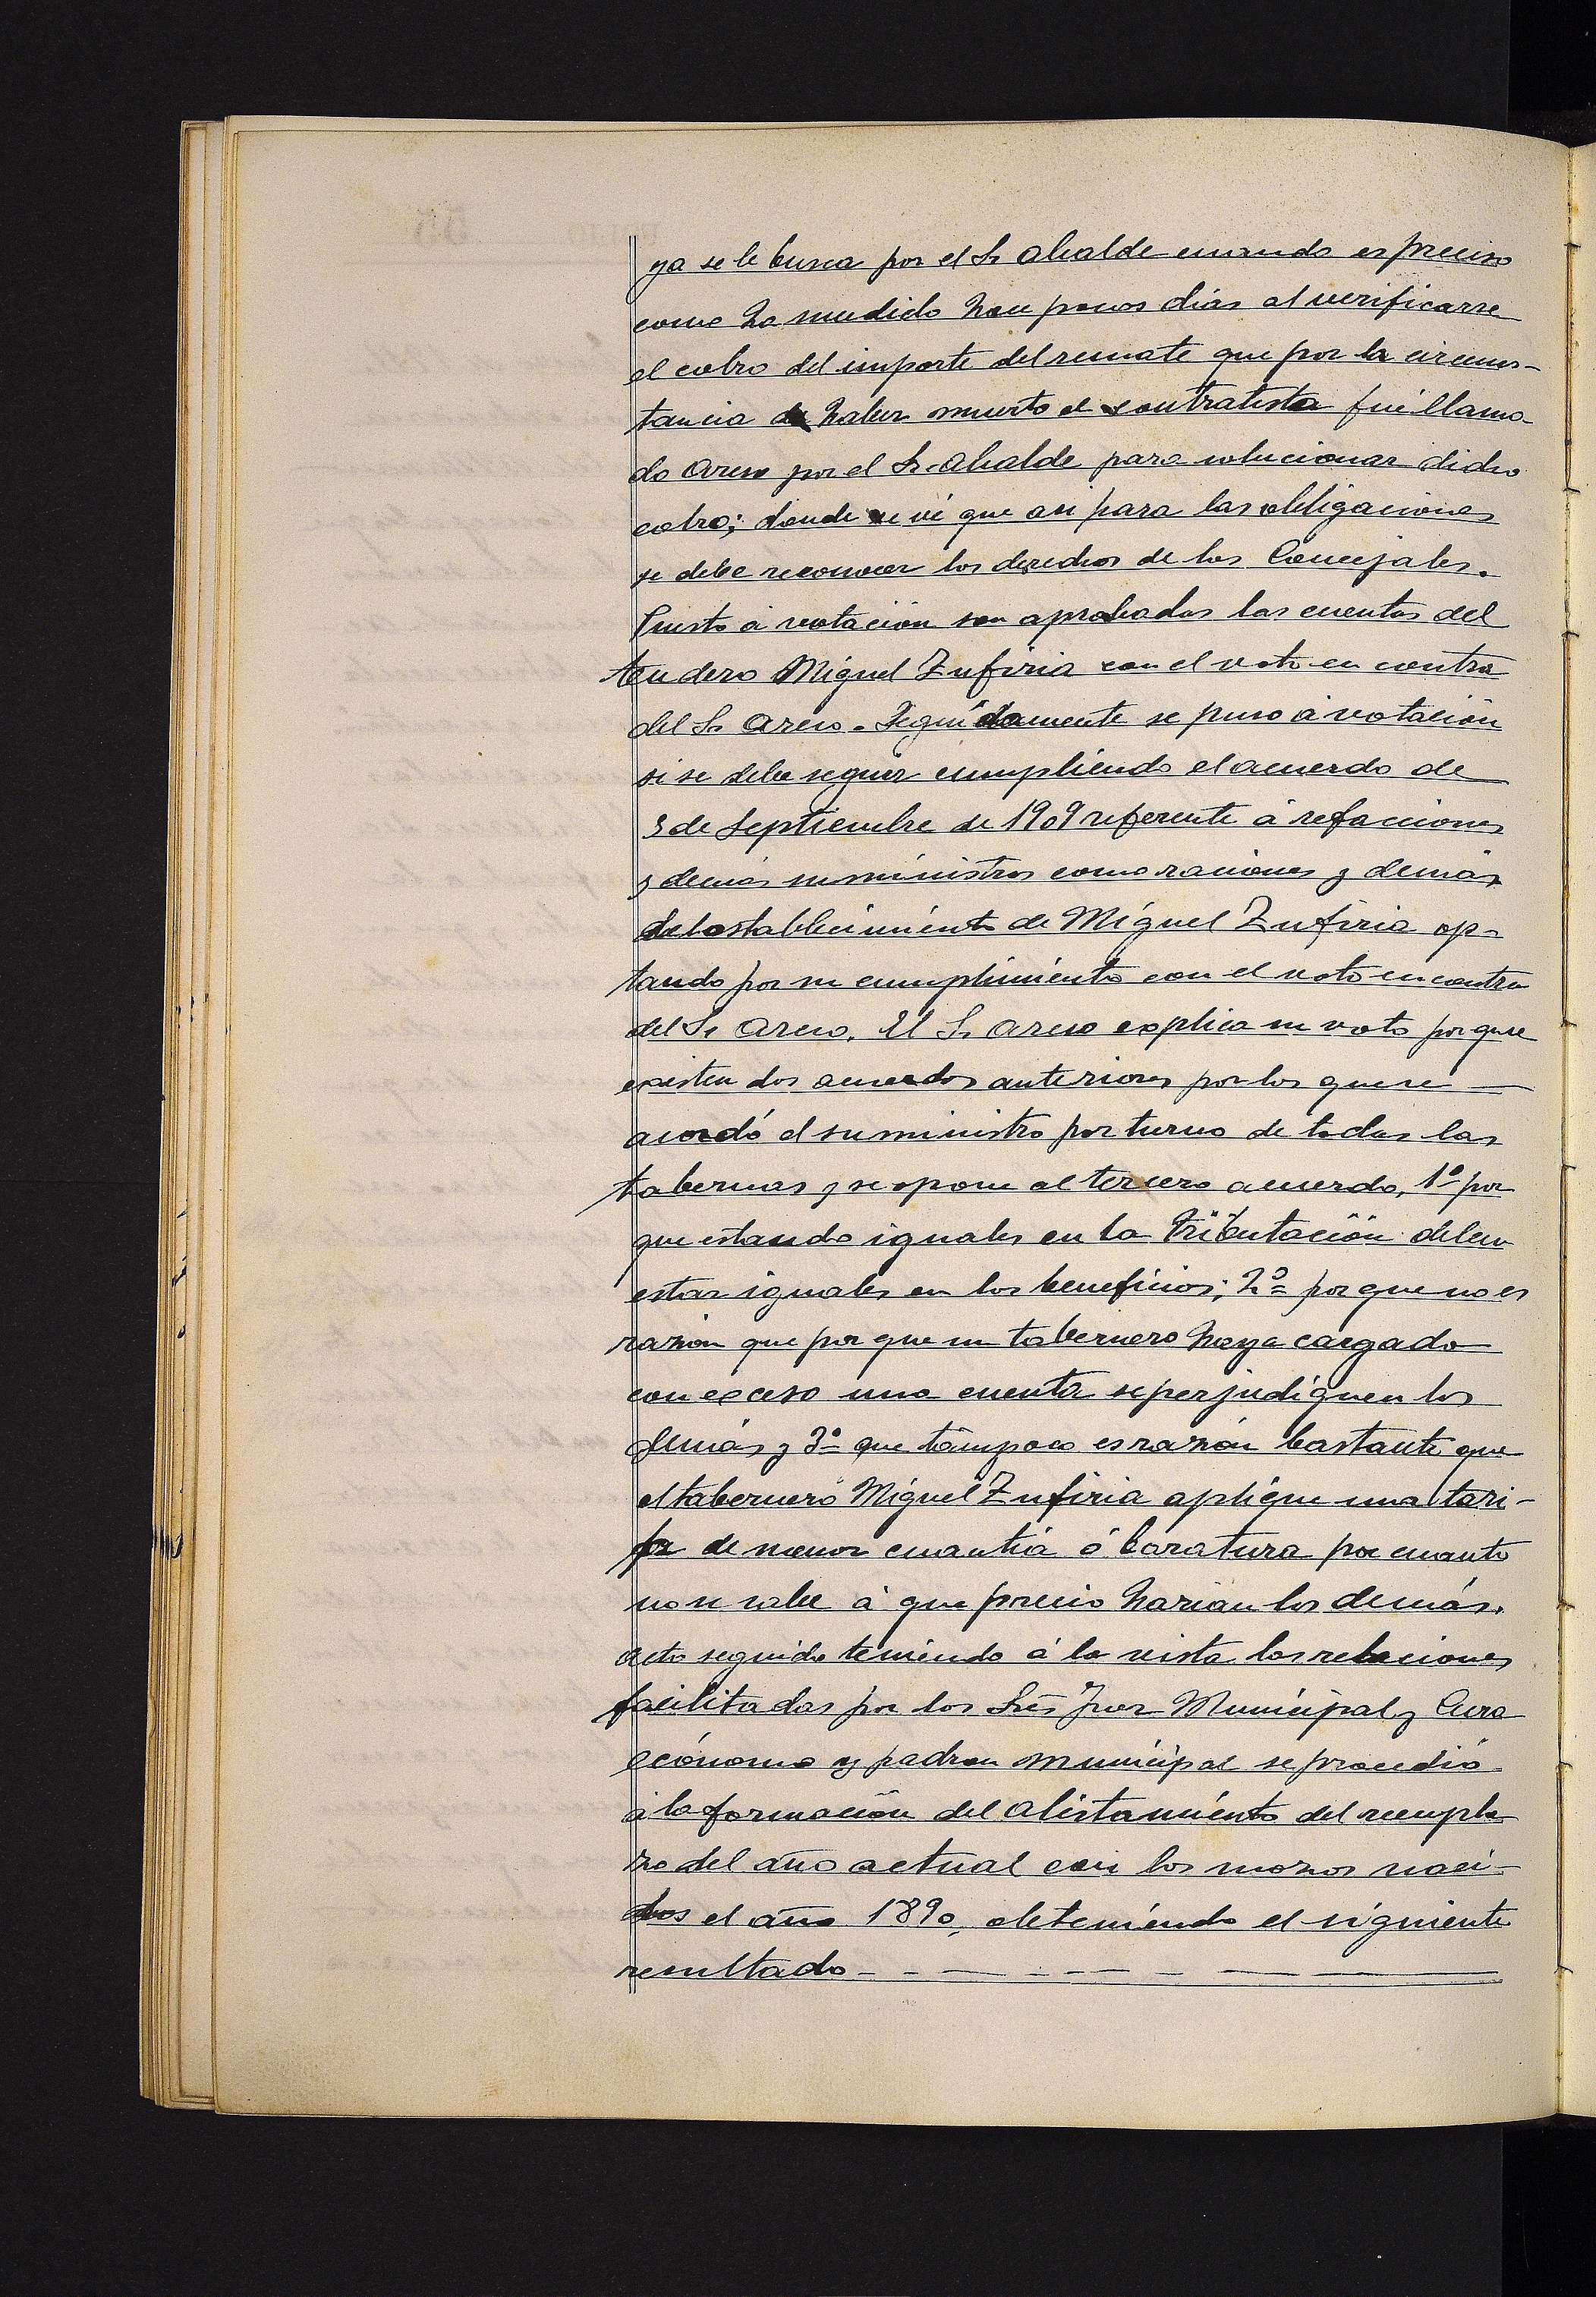 ya se le busca por el Sr Alcalde cuando es preciso
como ha sucedido hace pocos dias al verificarse
el cobro del importe del remate que por la circuns-
tancia de haber muerto el contratista fué llama-
do Areso por el Sr Alcalde para solucionar dicho
cobro; donde se vé que asi para las obligaciones
se debe reconocer los derechos de los Concejales.
Puesto á votación son aprobadas las cuentas del
tendero Miguel Zufiria con el voto en contra
del Sr Areso. Seguidamente se puso á votación
si se debe seguir cumpliendo el acuerdo de
3 de Septiembre de 1909 referente á refacciones
y demás suministros como raciones y demás
del establecimiento de Miguel Zufiria op-
tando por su cumplimiento con el voto en contra
del Sr Areso. El Sr Areso explica su voto porque
existen dos acuerdos anteriores por los que se
acordó el suministro por turno de todas las
tabernas y se opone al tercero acuerdo, 1º por
que estando iguales en la tributación deben
estar iguales en los beneficios; 2º por que no es
razón que por que un tabernero haya cargado
con exceso una cuenta se perjudiquen los
demás y 3º que támpoco es razón bastante que
el tabernero Miguel Zufiria aplique una tari-
fa de menor cuantiá ó baratura por cuanto
no se sabe á que precio harian los demás.
Acto seguido teniendo á la vista las relaciones
facilitadas por los Sres Juez Municipal y Cura
ecónomo y padron municipal se procedió
á la formación del Alistamiento del reempla
zo del año actual con los mozos naci-
dos el año 1890, obteniendo el siguiente
resultado